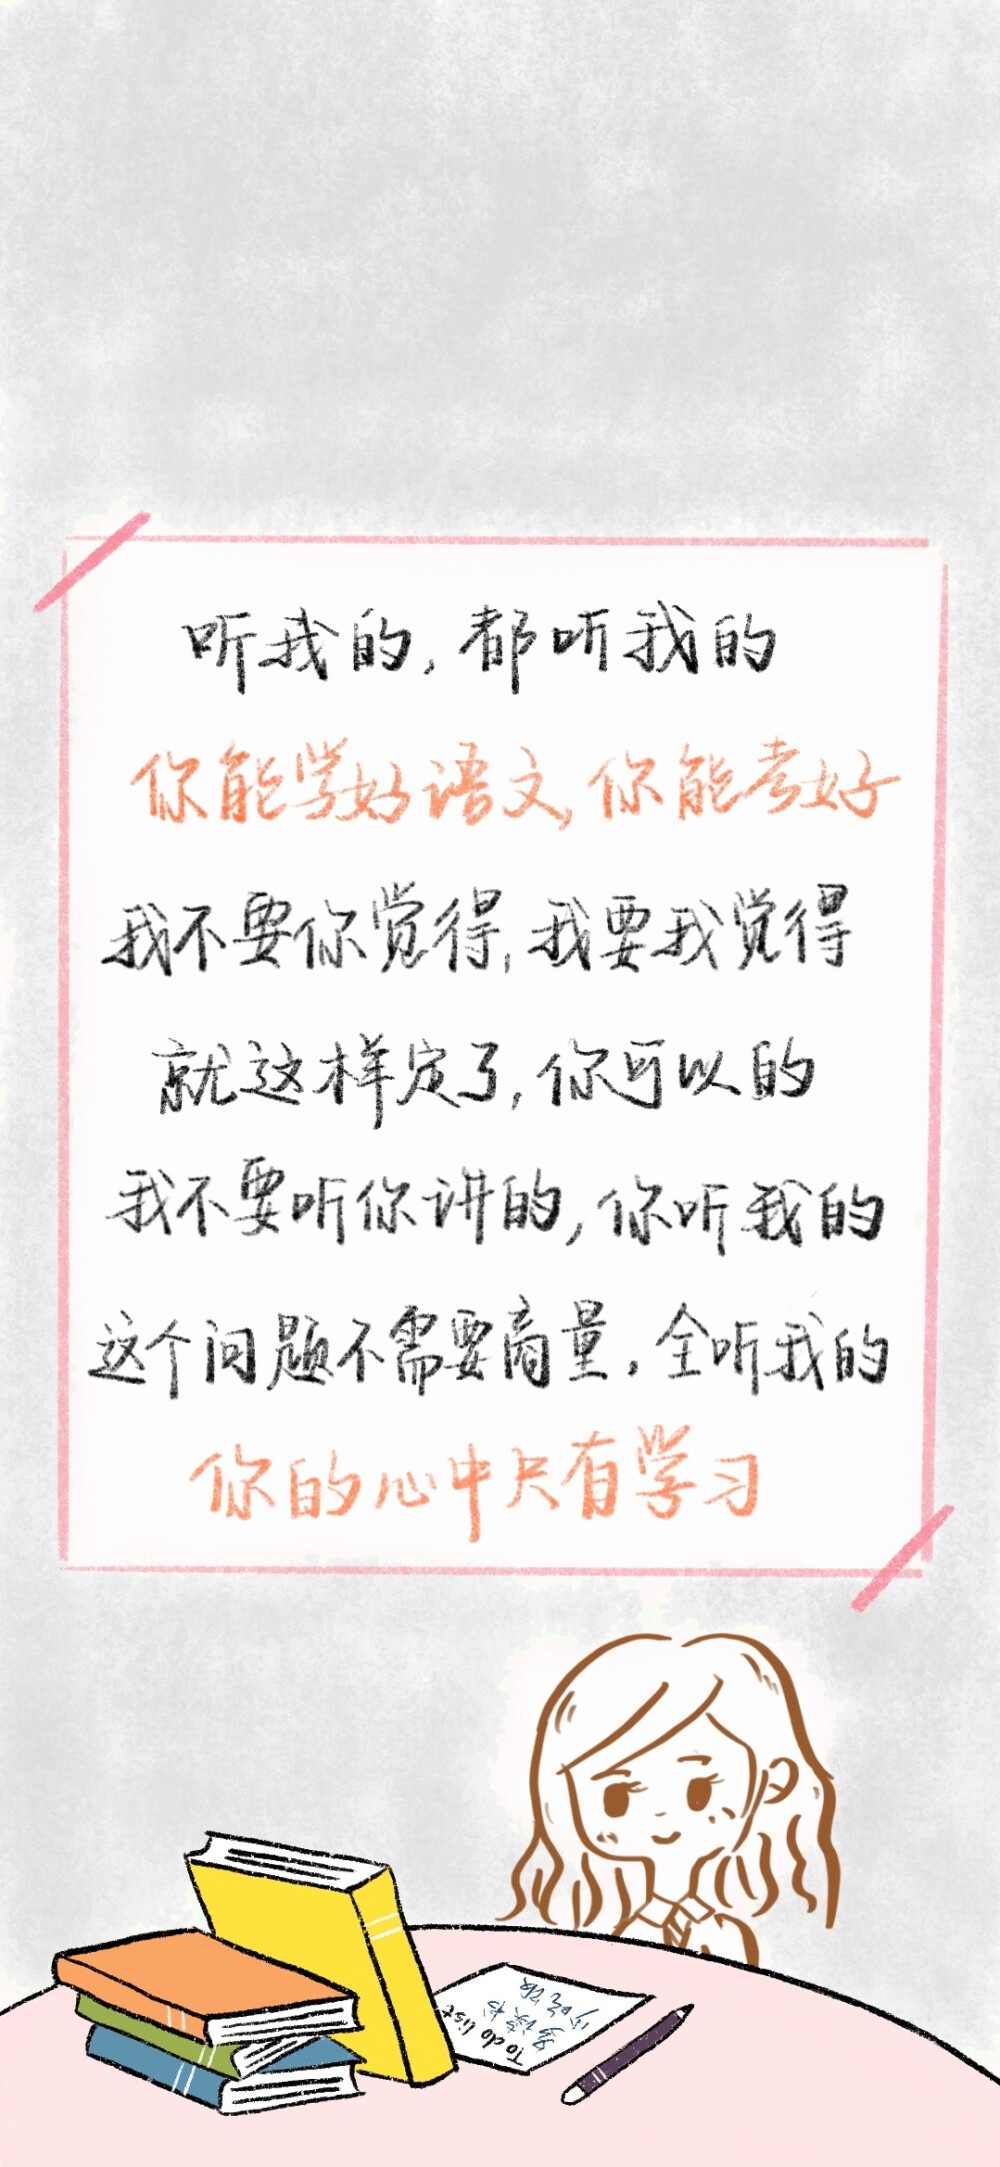 听我的,都听我的
你能学好语文,你能考好
我不要你觉得,我要我觉得
就这样定了,你可以的
我不要听你讲的,你听我的
这个问题不需要商量.全听我的
你的心中只有学习
To do list
多读书
少吃饭